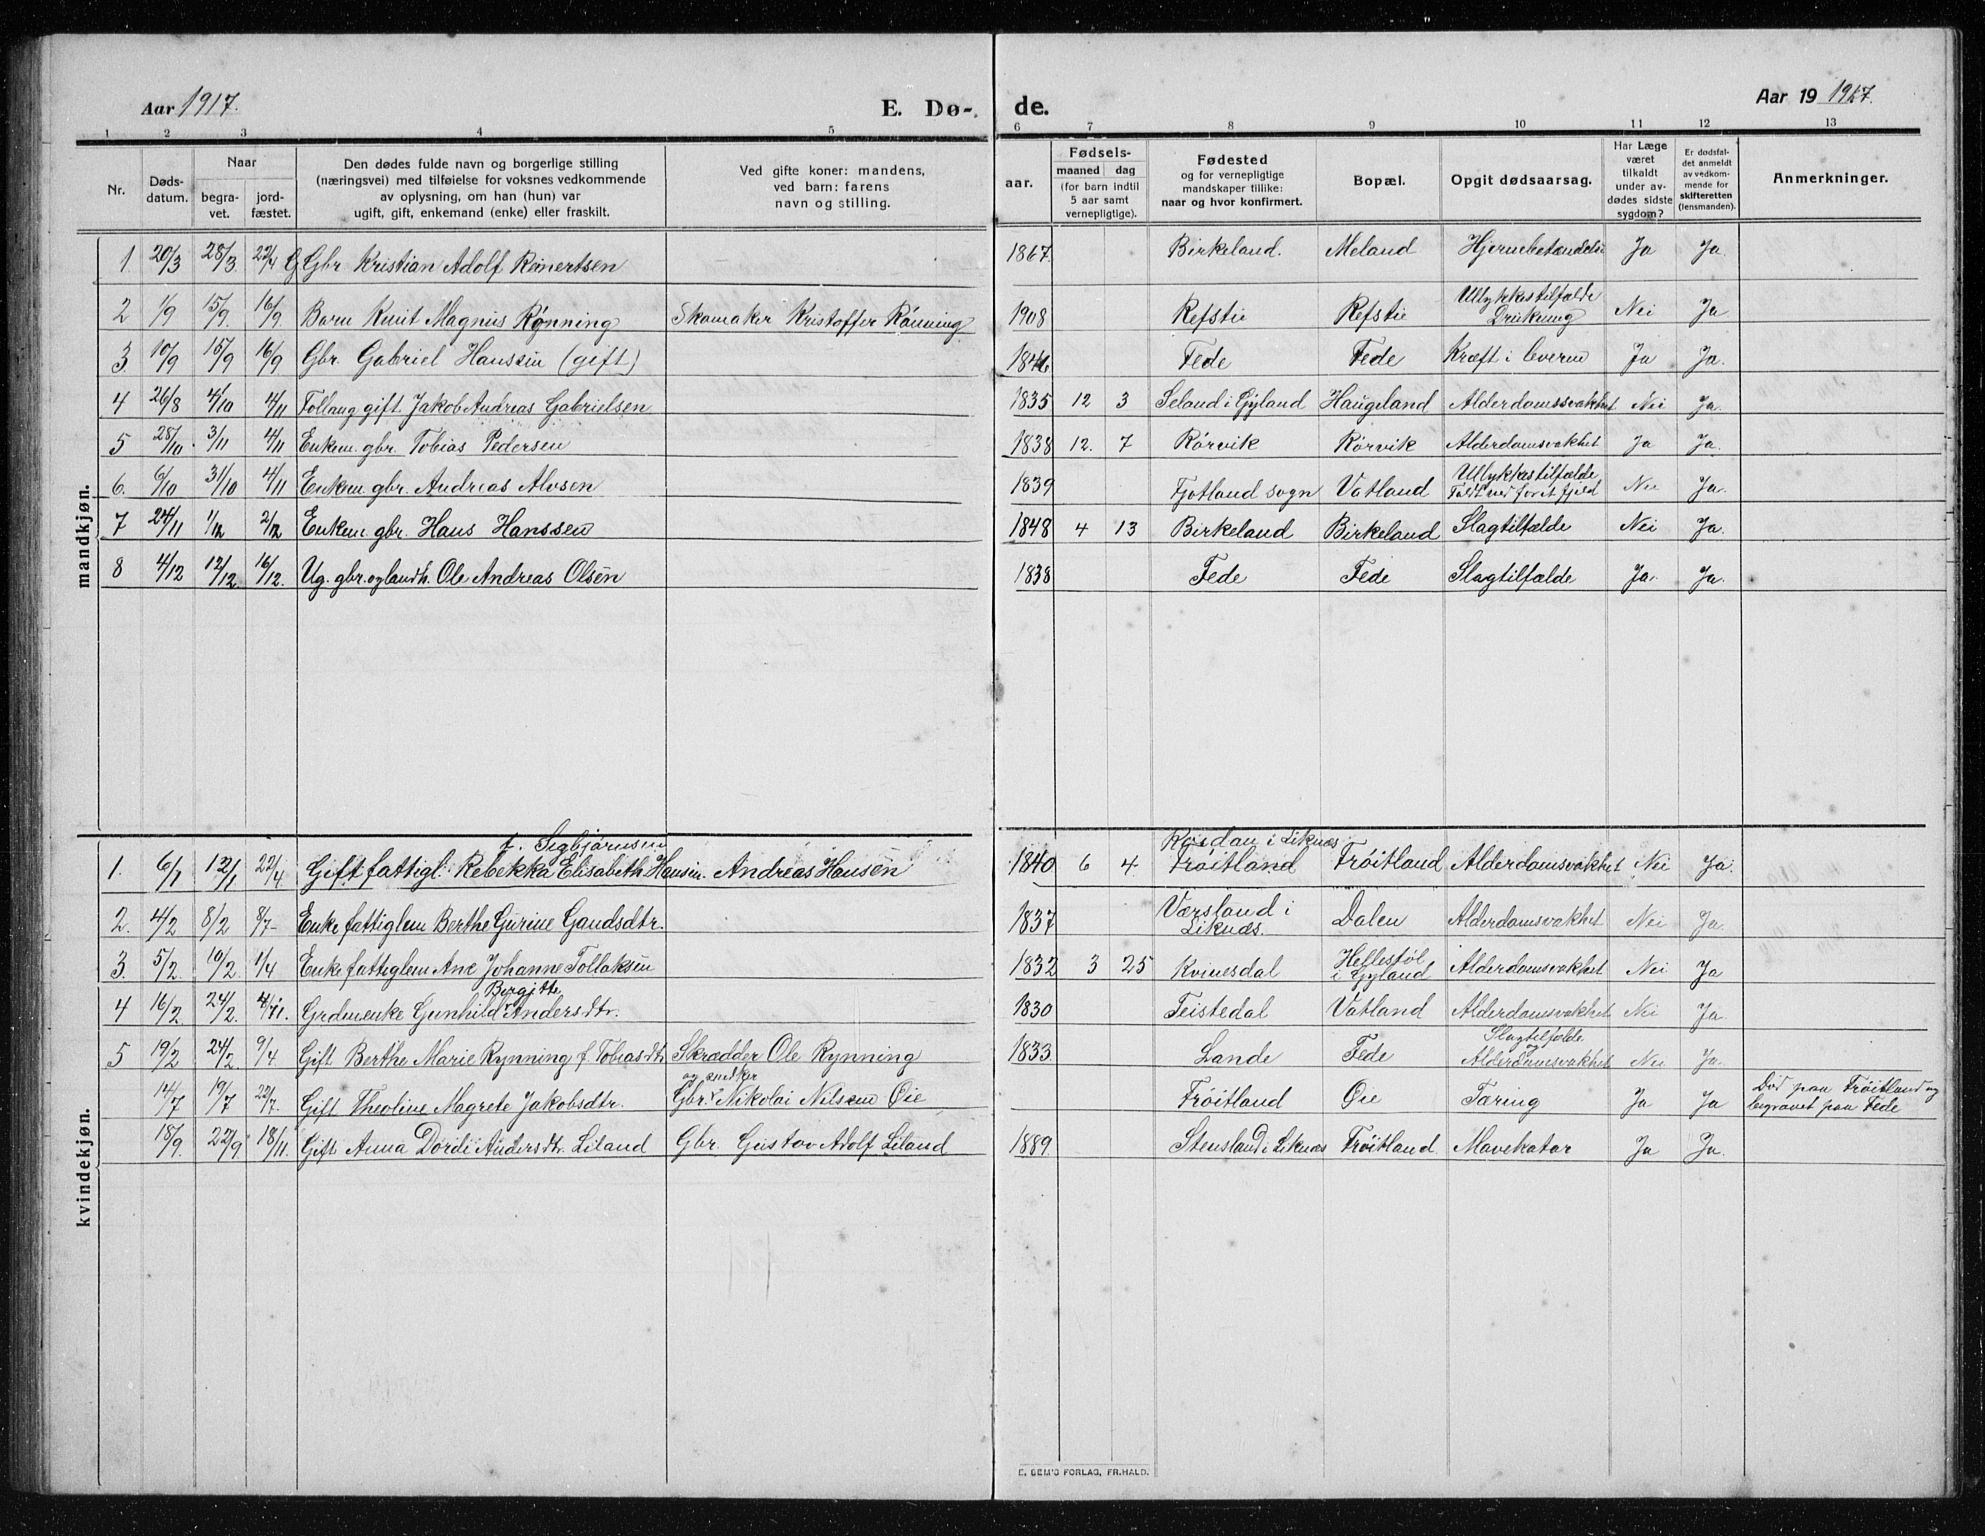 Aar 1917. E. Dø- de. Aar 19 1917.
1 2 3 4 5 6 7 8 9 10 11 12 13
Nr.
Døds-
datum.
Naar
begra-
vet.
jord-
fæstet.
Den dødes fulde navn og borgerlige stilling
(næringsvei) med tilføielse for voksnes vedkommende
av oplysning, om han (hun) var
ugift, gift, enkemand (enke) eller fraskilt.
Ved gifte koner: mandens,
ved barn: farens
navn og stilling.
aar.
Fødsels-
maaned dag
(for barn indtil
5 aar samt
vernepligtige).
Fødested
og for vernepligtige
mandskaper tillike:
naar og hvor konfirmert.
Bopæl.
Opgit dødsaarsag.
Har Læge
været
tilkaldt
under av-
dødes sidste
sygdom?
Er dødsfal-
det anmeldt
av vedkom-
mende for
skifteretten
(lensmanden).
Anmerkninger.
mandkjøn.
1 20/3 28/3 22/4 G Gbr Kristian Adolf Reinertsen 1867. Birkeland. Meland Hjernebetændelse Ja Ja.
2 1/9 15/9. 16/9 Barn Knut Magnus Rønning Skomaker Kristoffer Rønning 1908 Refstie Refstie Ullykkestilfælde
Drukning Nei Ja
3. 10/9 15/9 16/9 Gbr. Gabriel Hanssen (gift) 1846 Fede Fede Kræft i leveren Ja Ja.
4 26/8 4/10 4/11 Tollaug gift. Jakob Andreas Gabrielsen 1835 12 3 Seland i Gyland Haugeland Alderdomssvakhet Nei Ja.
5 28/10. 3/11 4/11 Enkem. gbr. Tobias Pedersen 1838 12. 7 Rørvik Rørvik Alderdomsvakhet Ja Ja.
6. 6/10 31/10 4/11 Enkem gbr. Andreas Alvsen 1839 Fjotland sogn Vatland Ullykkestilfælde
Faldt ned for et fjeld Nei Ja.
7 24/11 1/12 2/12 Enkem. gbr. Hans Hanssen 1848 4 13 Birkeland Birkeland Slagtilfælde Nei Ja
8 4/12 12/12. 16/12. Ug. gbr. og landh. Ole Andreas Olsen 1838 Fede Fede Slagtilfælde Ja. Ja.
kvindekjøn.
f. Sigbjørnsen Kvedan i Liknæs
1. 6/1 12/1 22/4. Gift fattigl. Rebekka Elisabeth Hansen. Andreas Hansen 1840 6 4. Frøitland Frøitland Alderdomsvakhet Nei Ja.
2. 4/2 8/2 8/7- Enke fattiglem Berthe Gurine Gaudsdtr. 1837 Værsland i
Liknæs. Dalen Alderdomsvakhet Nei Ja
3. 5/2 10/2. 1/4 Enke fattiglem Ane Johanne Tollaksen 1832 3 25 Kvinesdal Hellestøl
i Gyland Alderdomsvakhet Nei Ja
Bergitte
4 16/2 24/2. 4/11. Grdmenke Gunhild Andersdtr. 1830 Feistedal Vatland Alderdomsvakhet Nei Ja
5 19/2 24/2. 9/4 Gift Berthe Marie Rynning f. Tobiasdtr Skrædder Ole Rynning 1833. Lande Fede Slagtilfælde
og
Alderdomsvakhet Nei Ja.
og snedker
14/7 19/7 22/7. Gift Theoline Magrete Jakobsdtr. Gbr. Nikolai Nilsen Øie Frøitland Øie Tæring Ja Ja Död paa Frøitland og
begravet paa Fede
18/9. 22/9 18/11 Gift Anna Dordi Andersdtr. Liland Gbr. Gustav Adolf Liland 1889. Stensland i Liknæs Frøitland. Mavekatar Ja Ja.
E. SEM'S FORLAG, FR.HALD.